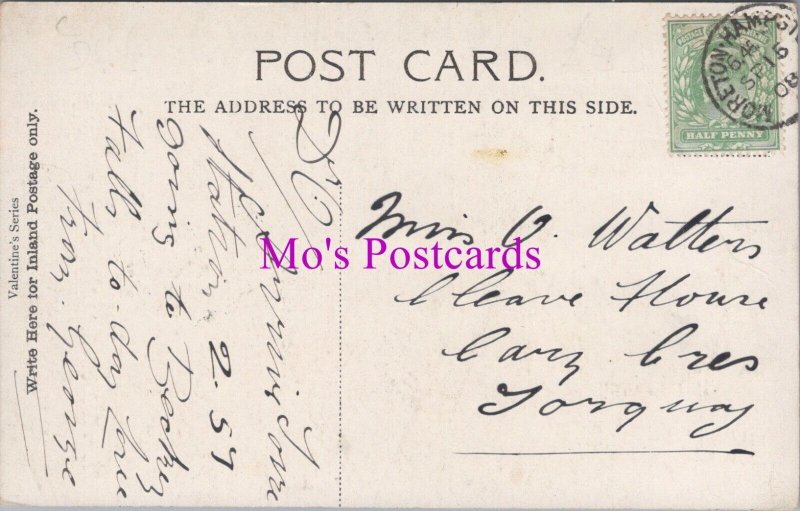 POST CARD.
THE ADDRESS TO BE WRITTEN ON THIS SIDE.
HALF PENNY
MORETON HAMPSTE
SP 16
08
Valentine's Series
Write Here for Inland Postage only.
Dr O
arrive Torre
Station 2.57
Going to Beckey
Falls to-day Love
from George
Miss O. Watters
Cleave House
Cary Cres
Torquay
Mo's Postcards